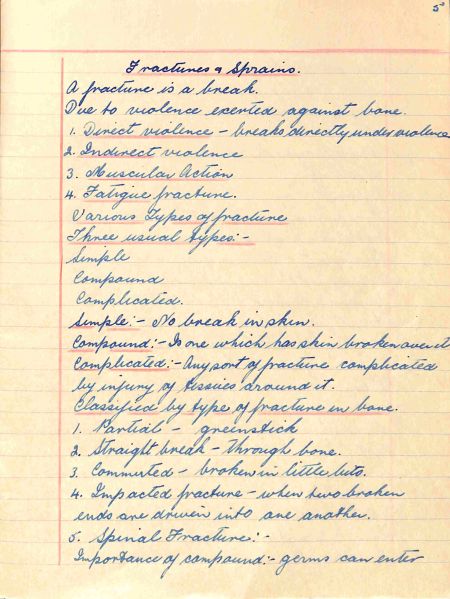 5
Fractures & Sprains.
A fracture is a break.
Due to violence exerted against bone.
1. Direct violence - breaks directly under violence
2. Indirect violence
3. Muscular Action
4. Fatigue fracture.
Various Types of fracture
Three usual types:-
Simple
Compound
Complicated.
Simple:- No break in skin.
Compound:- Is one which has skin broken over it
Complicated:- Any sort of fracture complicated
by injury of tissues around it.
Classified by type of fracture in bone.
1. Partial - greenstick
2. Straight break - through bone.
3. Commuted - broken in little bits.
4. Impacted fracture - when two broken
ends are driven into one another.
5. Spinal Fracture:-
Importance of compound:- germs can enter